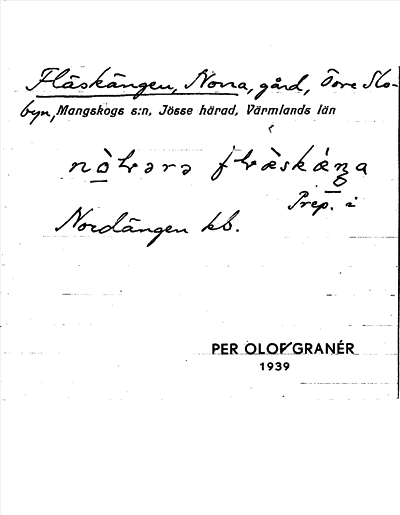 Fläskängen, Norra, gård, Övre Slo-
byn, Mangskogs s:n, Jösse härad, Värmlands län
Prep. i
Nordängen kb.
PER OLOF GRANÉR
1939